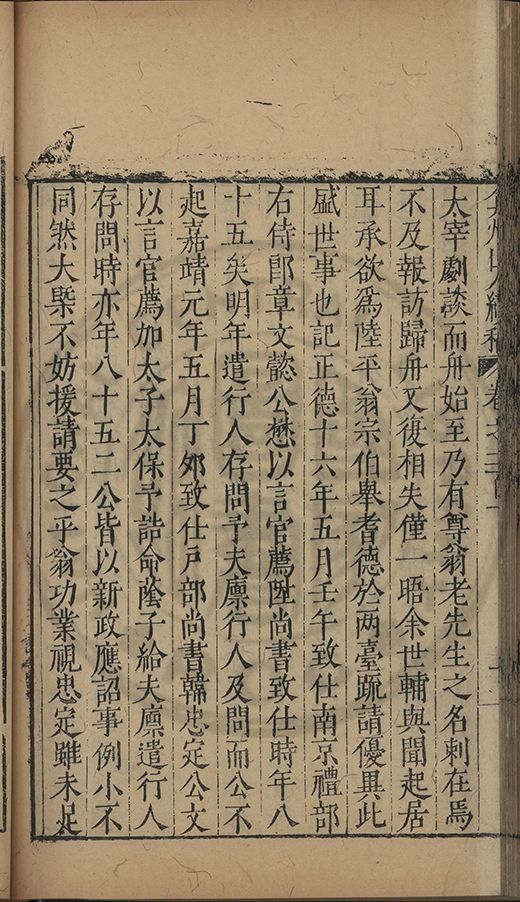 弇州山人續稿 卷之二百一
太宰劇談而舟始至乃有尊翁老先生之名刺在焉
不及報訪歸舟又復相失僅一晤余世輔與聞起居
耳承欲爲陸平翁宗伯舉耆德於兩臺疏請優異此
盛世事也記正德十六年五月壬午致仕南京禮部
右侍郎章文懿公懋以言官薦陞尚書致仕時年八
十五矣明年遣行人存問予夫廪行人及問而公不
起嘉靖元年五月丁夘致仕戶部尚書韓忠定公文
以言官薦加太子太保予誥命蔭子給夫廪遣行人
存問時亦年八十五二公皆以新政應詔事例小不
同然大槩不妨援請要之平翁功業視忠定雖未足